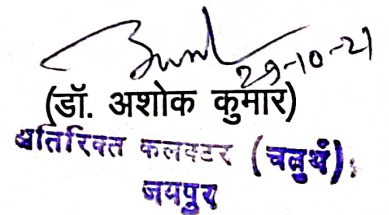 29-10-21
(डॉ. अशोक कुमार)
अतिरिक्त कलक्टर (चतुर्थ),
जयपुर